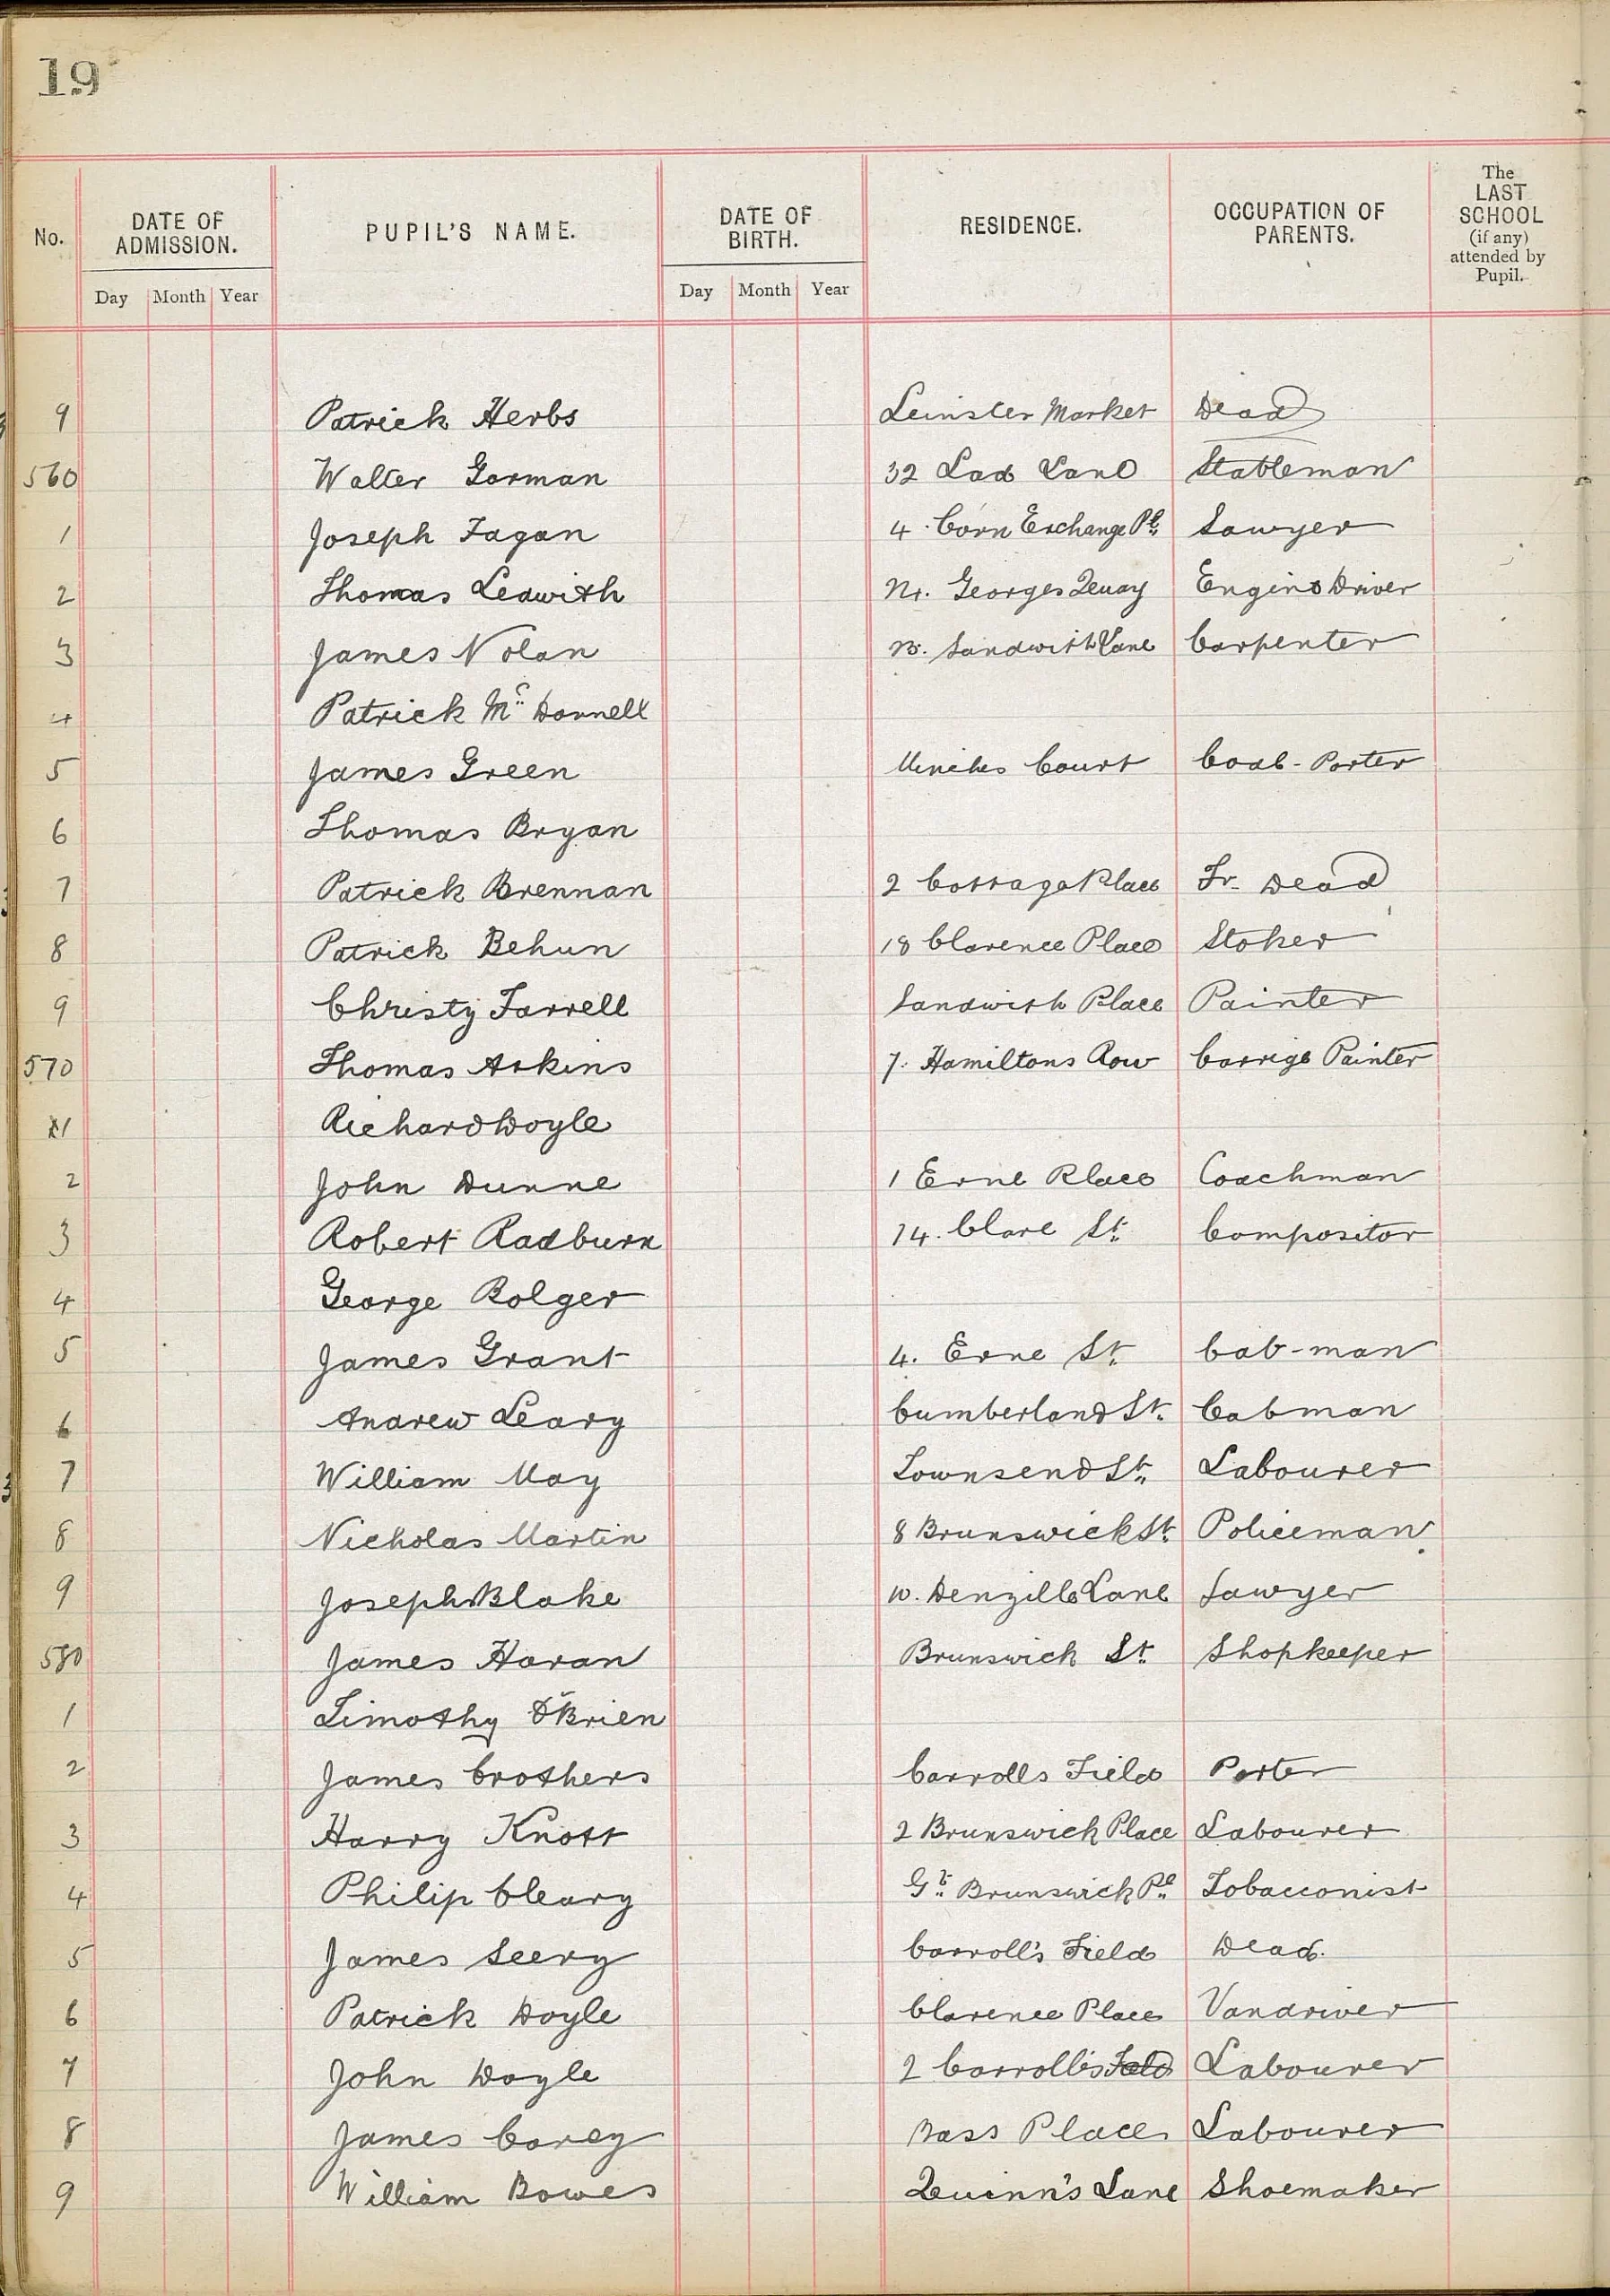 19
No. DATE OF ADMISSION. PUPIL'S NAME. DATE OF BIRTH. RESIDENCE. OCCUPATION OF PARENTS. The LAST SCHOOL (if any) attended by Pupil.
Day Month Year Day Month Year
9 Patrick Herbs Leinster Market Dead
560 Walter Gorman 32 Lad Lane Stableman
1 Joseph Fagan 4. Corn Exchange Pl. Sawyer
2 Thomas Ledwith Georges Quay Engine Driver
3 James Nolan Sandwith Lane Carpenter
4 Patrick Mc Donnell
5 James Green Court Coal-Porter
6 Thomas Bryan
7 Patrick Brennan 2 Cottage Place Fr. Dead
8 Patrick Behun 18 Clarence Place Stoker
9 Christy Farrell Sandwith Place Painter
570 Thomas Askins 7. Hamiltons Row Carrige Painter
1 Richard Doyle
2 John Dunne 1 Erne Place Coachman
3 Robert Radburn 14. Clare St. Compositor
4 George Bolger
5 James Grant 4. Erne St. Cab-man
6 Andrew Leary Cumberland St. Cabman
7 William May Townsend St. Labourer
8 Nicholas Martin 8 Brunswick St. Policeman
9 Joseph Blake 10. Denzille Lane Sawyer
580 James Haran Brunswick St. Shopkeeper
1 Timothy O'Brien
2 James Crothers Carrolls Field Porter
3 Harry Knott 2 Brunswick Place Labourer
4 Philip Cleary Gt. Brunswick Pl. Tobacconist
5 James Seery Carroll's Field Dead.
6 Patrick Doyle Clarence Place Vandriver
7 John Doyle 2 Carroll's Field Labourer
8 James Carey Bass Place Labourer
9 William Bowes Quinn's Lane Shoemaker